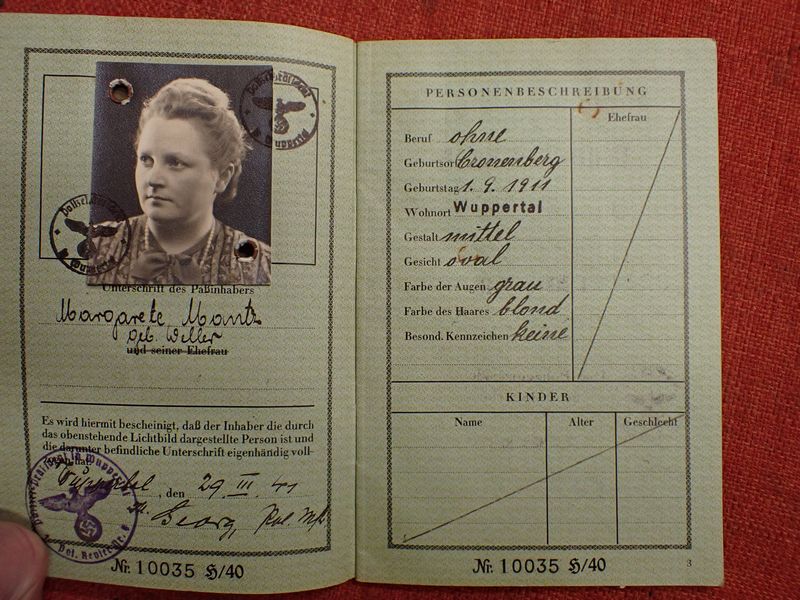 Unterschrift des Paßinhabers
Margarete Mantz
geb. Weller
und seiner Ehefrau
Es wird hiermit bescheinigt, daß der Inhaber die durch
das obenstehende Lichtbild dargestellte Person ist und
die darunter befindliche Unterschrift eigenhändig voll-
Wuppertal, den 29 III. 41
Georg, Pol. Mstr
Nr. 10035 H/40
PERSONENBESCHREIBUNG
Ehefrau
Beruf ohne
Geburtsort Cronenberg
Geburtstag 1. 9. 1911
Wohnort Wuppertal
Gestalt mittel
Gesicht oval
Farbe der Augen grau
Farbe des Haares blond
Besond. Kennzeichen keine
KINDER
Name Alter Geschlecht
Nr. 10035 H/40
3